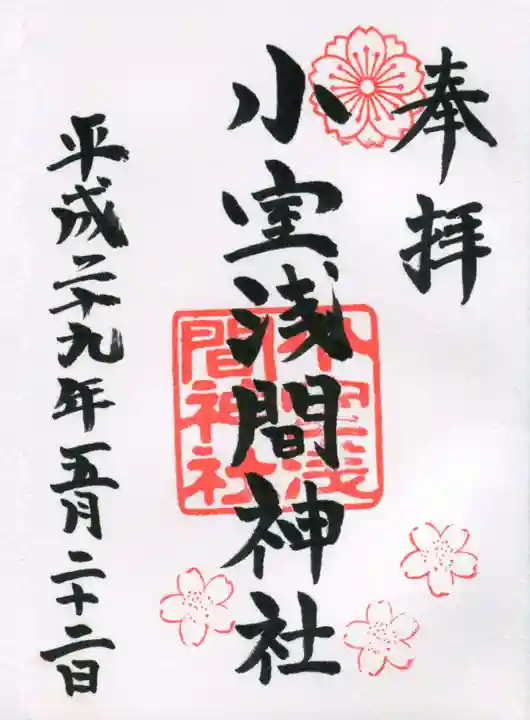 奉拝
小室浅間神社
小室浅間神社
平成二十九年五月二十二日